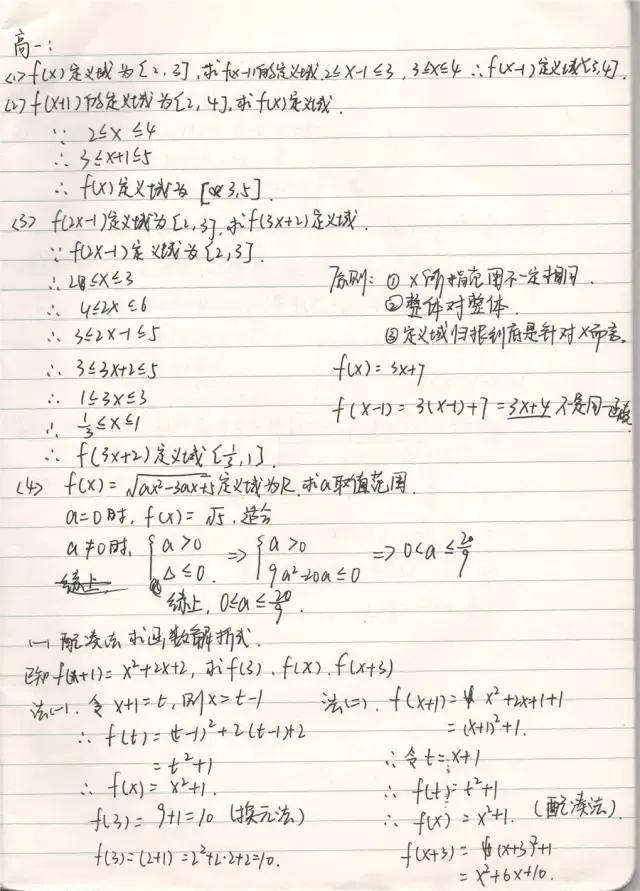 高一：
(1) f(x)定义域为[2,3],求f(x-1)的定义域. 2≤x-1≤3, 3≤x≤4 ∴f(x-1)定义域[3,4].
(2) f(x+1)的定义域为[2,4],求f(x)定义域.
∵ 2≤x≤4
∴ 3≤x+1≤5
∴ f(x)定义域为 [3,5].
(3) f(2x-1)定义域为[2,3],求f(3x+2)定义域.
∵ f(2x-1)定义域为[2,3].
∴ 2≤x≤3
∴ 4≤2x≤6
∴ 3≤2x-1≤5
∴ 3≤3x+2≤5
∴ 1≤3x≤3
∴ 1/3≤x≤1
∴ f(3x+2)定义域[1/3,1].
原则: ① x所指范围不一定相同.
② 整体对整体.
③ 定义域归根到底是针对x而言.
f(x)=3x+7
f(x-1)=3(x-1)+7=3x+4 不是同一函数
(4) f(x)=√(ax²-3ax+5)定义域为R,求a取值范围.
a=0时, f(x)=√5,适合
a≠0时, { a>0 ⇒ { a>0 ⇒ 0<a≤20/9
Δ≤0. 9a²-20a≤0
综上, 0≤a≤20/9.
(一) 配凑法求函数解析式.
已知f(x+1)=x²+2x+2,求f(3).f(x).f(x+3)
法(一). 令x+1=t,则x=t-1
∴ f(t)=(t-1)²+2(t-1)+2
=t²+1
∴ f(x)=x²+1.
f(3)=9+1=10 (换元法)
f(3)=(2+1)=2²+2·2+2=10.
法(二). f(x+1)=x²+2x+1+1
=(x+1)²+1.
∴令t=x+1
∴ f(t)=t²+1
∴ f(x)=x²+1. (配凑法)
f(x+3)=(x+3)²+1
=x²+6x+10.